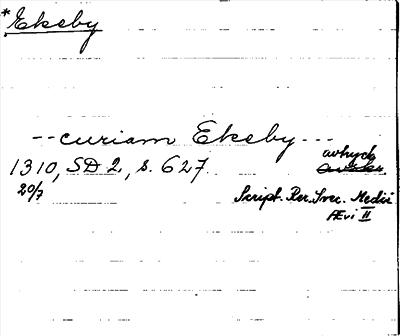 *Ekeby
--curiam Ekeby---
avtryck
1310, SD 2, s. 627
20/7
Script. Rer. Svec. Medii
Ævi II